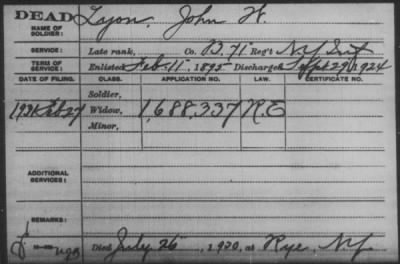 DEAD Lyon, John W.
NAME OF SOLDIER:
SERVICE: Late rank, Co. B. 71 Reg't N.Y. Inf
TERM OF SERVICE: Enlisted Feb. 11, 1895 Discharged Sept 29, 1924
DATE OF FILING. CLASS. APPLICATION NO. LAW. CERTIFICATE NO.
Soldier,
1931 Feb 27 Widow, 1,688,337 R.E
Minor,
ADDITIONAL SERVICES:
REMARKS:
Died July 26, 1930, at Rye, N.Y.